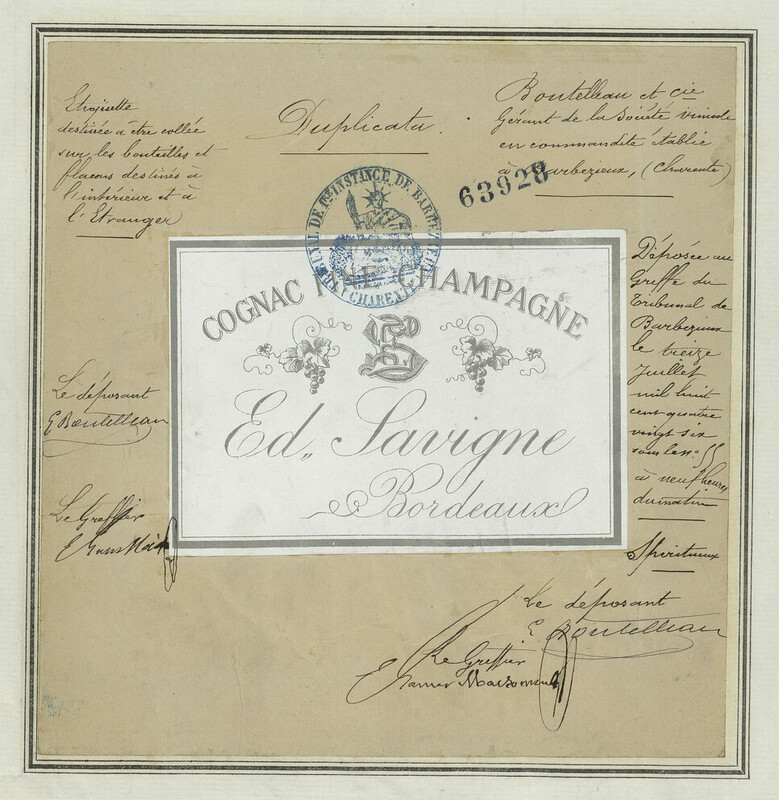 Etiquette
destinée à être collée
sur les bouteilles et
flacons destinés a
l'intérieur et à
l'Etranger
Duplicata.
Boutelleau et cie
Gérant de la Société vinicole
en commandite établie
à Barbezieux, (Charente)
63928
TRIBUNAL DE 1re INSTANCE DE BARBEZIEUX
(CHARENTE)
COGNAC FINE CHAMPAGNE
Ed. Savigne
Bordeaux
Déposée au
Greffe du
Tribunal de
Barbezieux
le treize
Juillet
mil huit
cent quatre
vingt six
sous le no: 55
à neuf heures
du matin
Spiritueux
Le déposant
E Boutelleau
Le Greffier
Le déposant
E. Boutelleau
Le Greffier